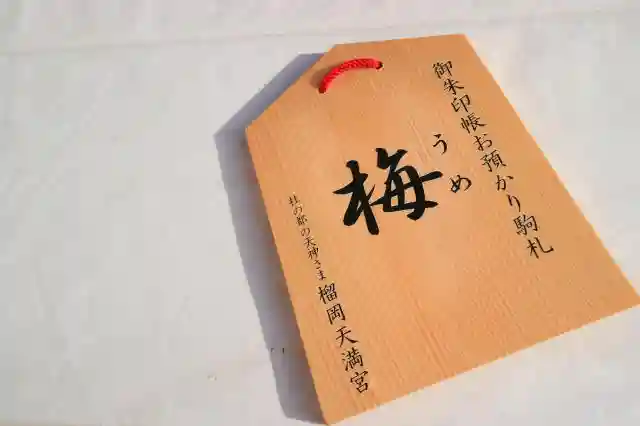 御朱印帳お預かり駒札
うめ
梅
杜の都の天神さま 榴岡天満宮